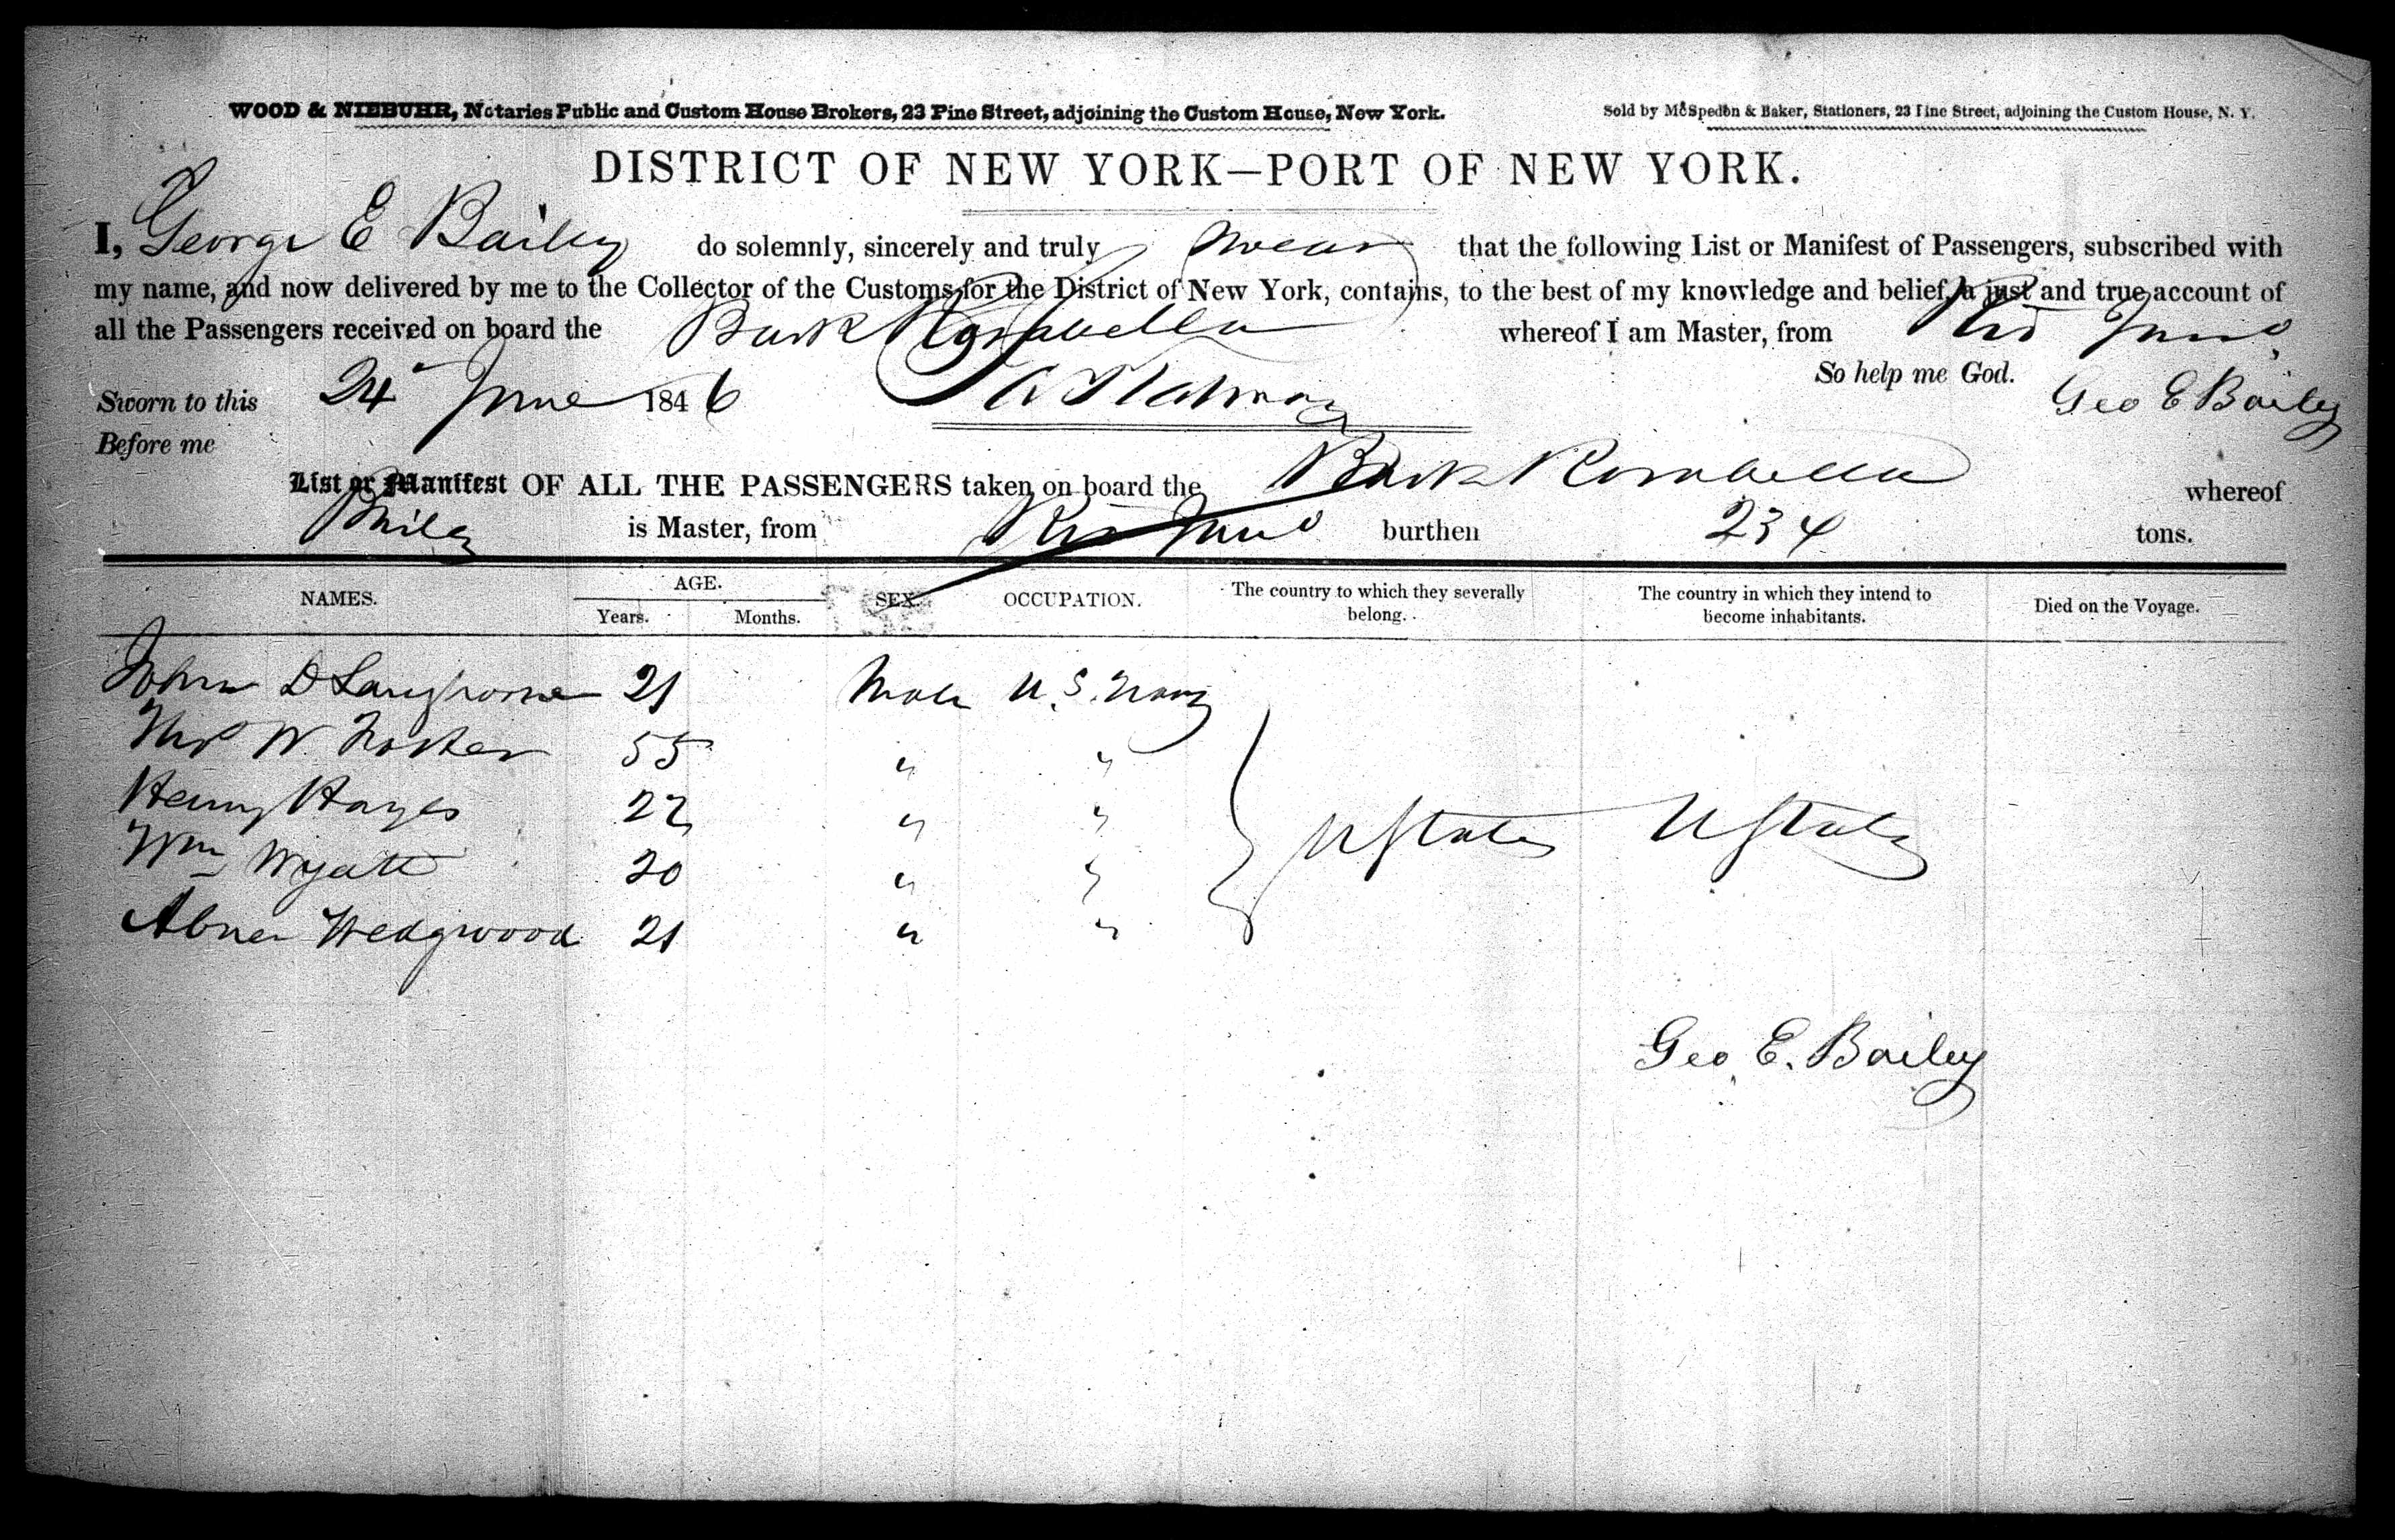 WOOD & NIEBUHR, Notaries Public and Custom House Brokers, 23 Pine Street, adjoining the Custom House, New York. Sold by McSpedon & Baker, Stationers, 23 Pine Street, adjoining the Custom House, N. Y.
DISTRICT OF NEW YORK—PORT OF NEW YORK.
I, George E Bailey do solemnly, sincerely and truly swear that the following List or Manifest of Passengers, subscribed with
my name, and now delivered by me to the Collector of the Customs for the District of New York, contains, to the best of my knowledge and belief, a just and true account of
all the Passengers received on board the Bark Rosabella whereof I am Master, from Rio
So help me God.
Sworn to this 24 June 1846 Geo E Bailey
Before me
List or Manifest OF ALL THE PASSENGERS taken on board the Bark Rosabella whereof
is Master, from Rio burthen 234 tons.
NAMES. AGE. SEX. OCCUPATION. The country to which they severally belong. The country in which they intend to become inhabitants. Died on the Voyage.
Years. Months.
John D Langhorne 21 Male U.S. Navy
Thos W. Foster 55 " "
Henry Hayes 22 " " U States U States
Wm Wyatt 20 " "
Abner Wedgwood 21 " "
Geo. E. Bailey